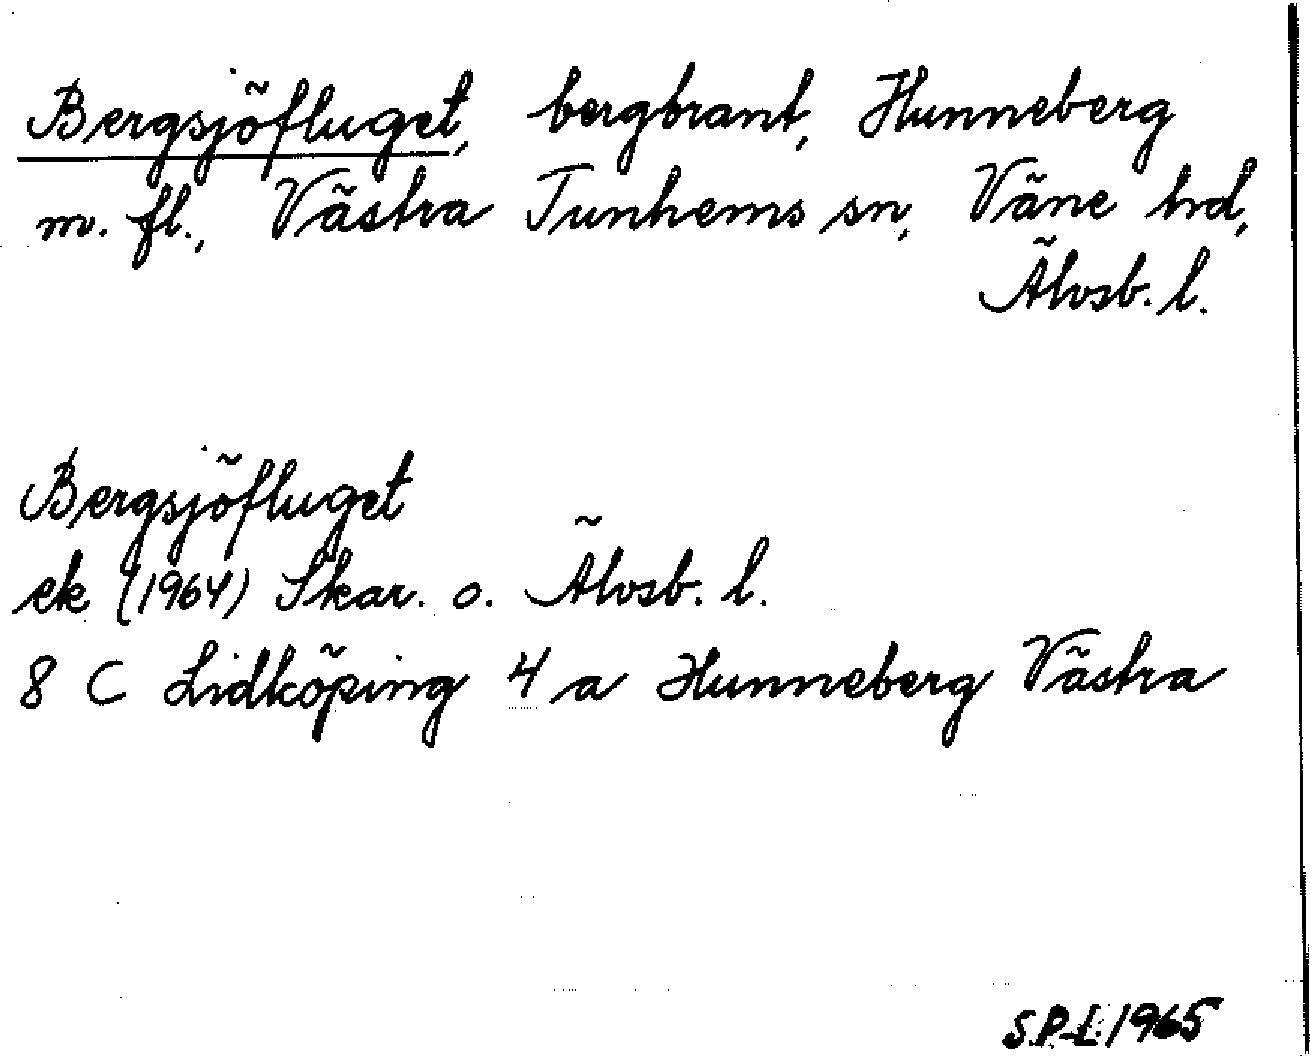 Bergsjöfluget, bergbrant, Hunneberg
m. fl., Västra Tunhems sn, Väne hd,
Älvsb. l.
Bergsjöfluget
ek (1964) Skar. o. Älvsb. l.
8 C Lidköping 4 a Hunneberg Västra
S.P.L. 1965